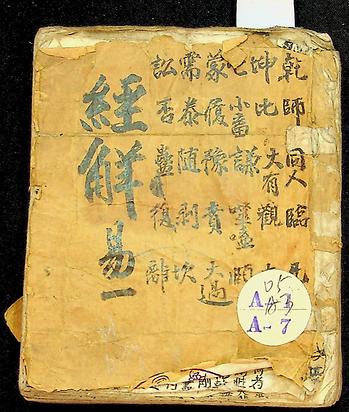 乾 師 同人 臨
坤 比 大有 觀
屯 小畜 謙 噬嗑 頤
蒙 履 豫 賁 大過
需 泰 隨 剥 坎
訟 否 蠱 復 離
經解 易一
05
A-3
A-7